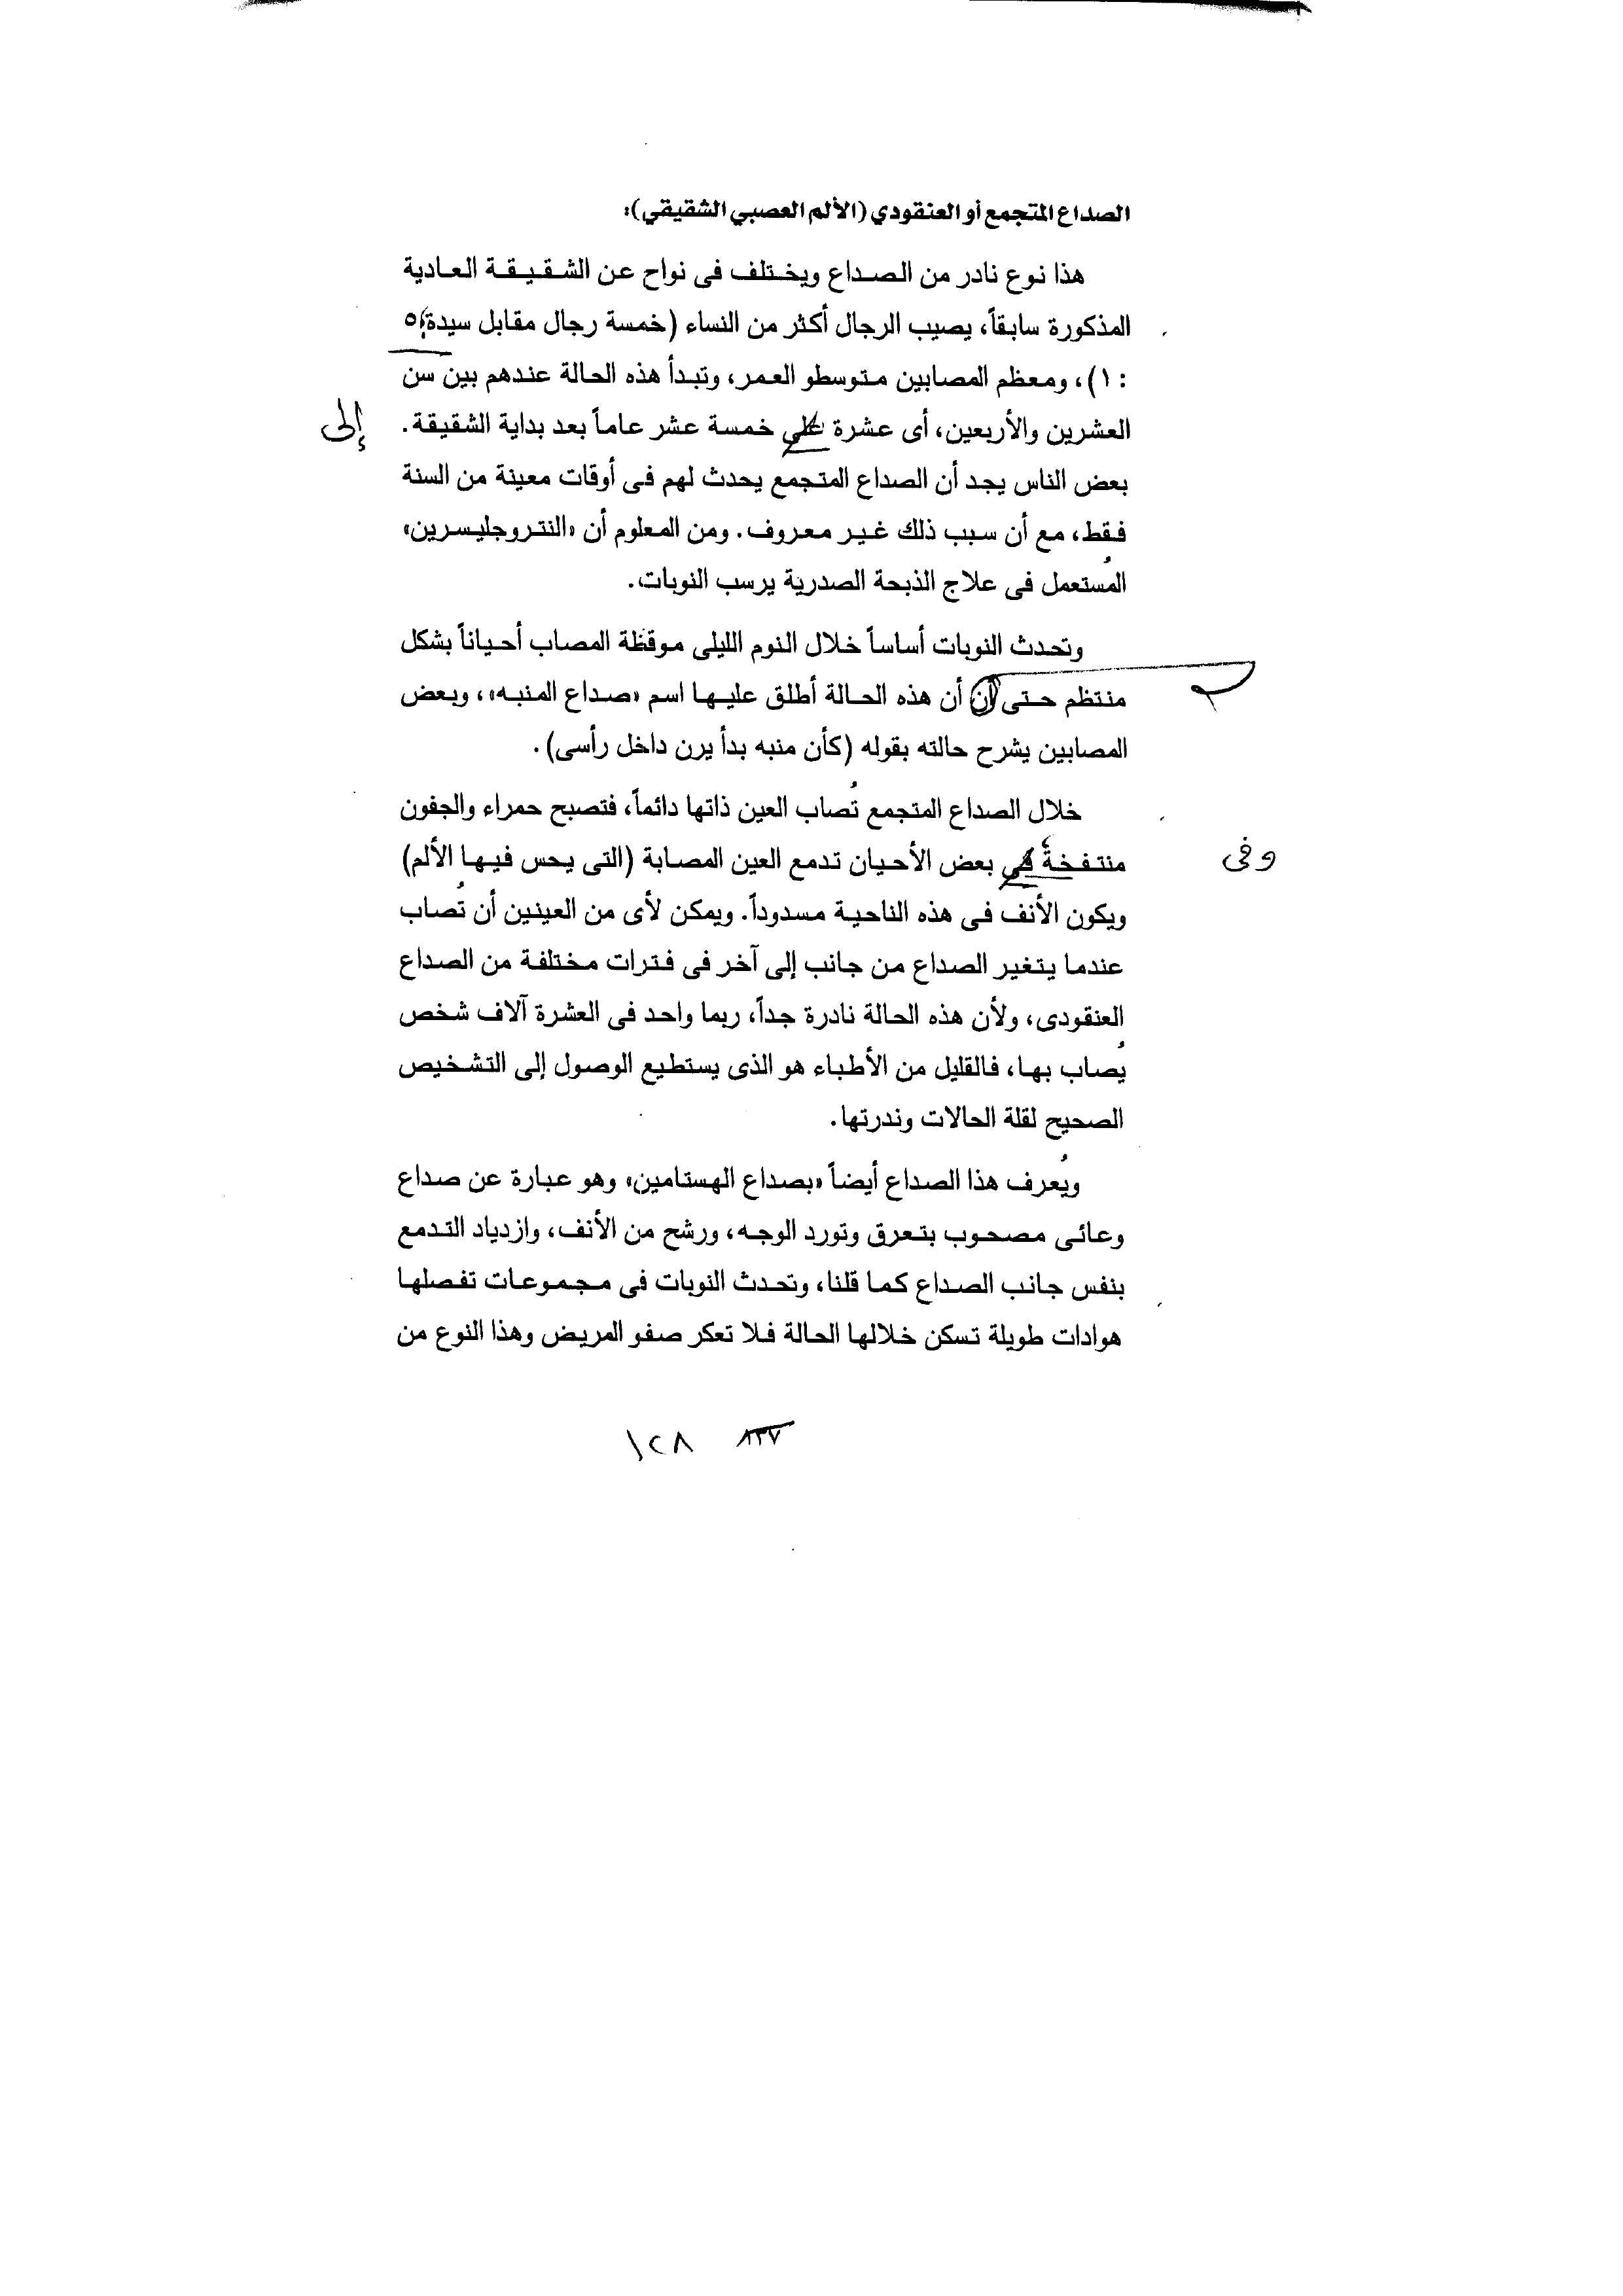 الصداع المتجمع أو العنقودي (الألم العصبي الشقيقي):
هذا نوع نادر من الصداع ويختلف فى نواح عن الشقيقة العادية
المذكورة سابقاً، يصيب الرجال أكثر من النساء (خمسة رجال مقابل سيدة، ٥
: ١)، ومعظم المصابين متوسطو العمر، وتبدأ هذه الحالة عندهم بين سن
العشرين والأربعين، أى عشرة على خمسة عشر عاماً بعد بداية الشقيقة.
إلى
بعض الناس يجد أن الصداع المتجمع يحدث لهم فى أوقات معينة من السنة
فقط، مع أن سبب ذلك غير معروف. ومن المعلوم أن «النتروجليسرين»
المُستعمل فى علاج الذبحة الصدرية يرسب النوبات.
وتحدث النوبات أساساً خلال النوم الليلى موقظة المصاب أحياناً بشكل
منتظم حتى أن أن هذه الحالة أطلق عليها اسم «صداع المنبه»، وبعض
المصابين يشرح حالته بقوله (كأن منبه بدأ يرن داخل رأسى).
خلال الصداع المتجمع تُصاب العين ذاتها دائماً، فتصبح حمراء والجفون
وفى
منتفخة، فى بعض الأحيان تدمع العين المصابة (التى يحس فيها الألم)
ويكون الأنف فى هذه الناحية مسدوداً. ويمكن لأى من العينين أن تُصاب
عندما يتغير الصداع من جانب إلى آخر فى فترات مختلفة من الصداع
العنقودى، ولأن هذه الحالة نادرة جداً، ربما واحد فى العشرة آلاف شخص
يُصاب بها، فالقليل من الأطباء هو الذى يستطيع الوصول إلى التشخيص
الصحيح لقلة الحالات وندرتها.
ويُعرف هذا الصداع أيضاً «بصداع الهستامين» وهو عبارة عن صداع
وعائى مصحوب بتعرق وتورد الوجه، ورشح من الأنف، وازدياد التدمع
بنفس جانب الصداع كما قلنا، وتحدث النوبات فى مجموعات تفصلها
هوادات طويلة تسكن خلالها الحالة فلا تعكر صفو المريض وهذا النوع من
١٢٨